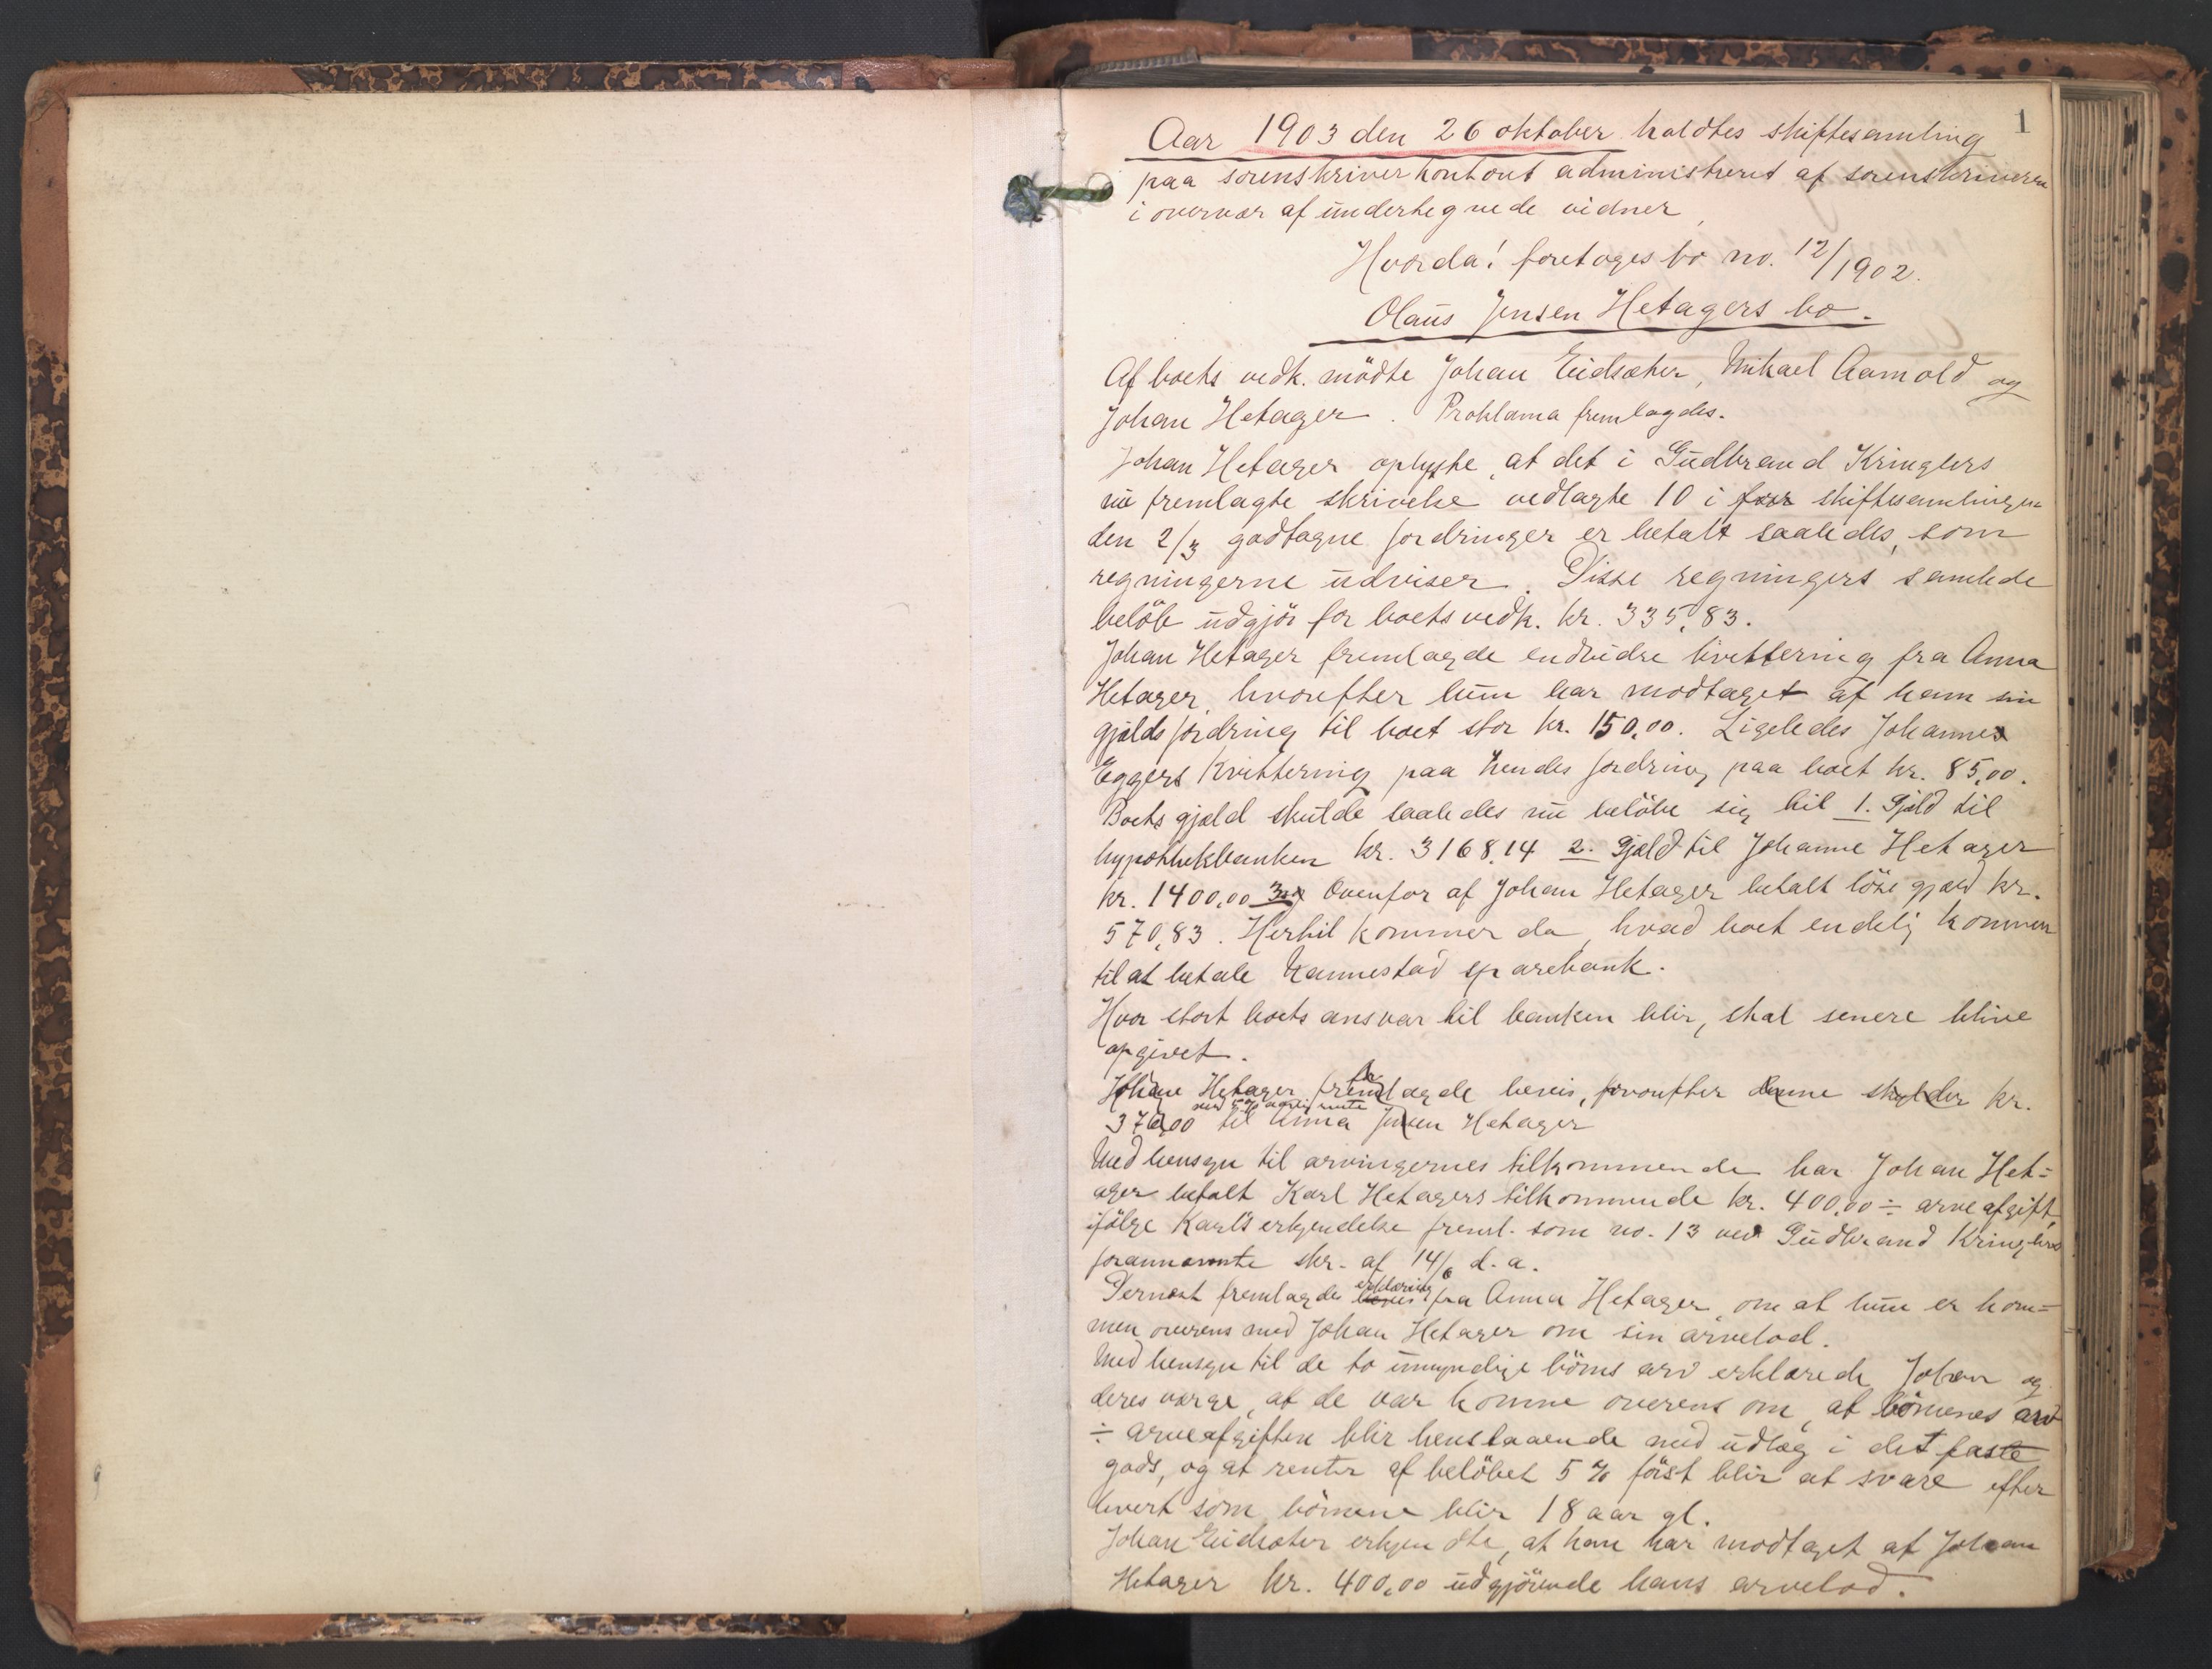 1
Aar 1903 den 26 oktober holdtes skiftesamling
paa sorenskriverkontoret administreret af sorenskriveren
i overvær af undertegnede vidner
Hvorda! foretoges bo no. 12/1902.
Olaus Jensen Hetagers bo.
Af boets vedk. mödte Johan Eidsæter, Mikael Aamold og
Johan Hetager. Proklama fremlagdes.
Johan Hetager oplyste, at det i Gudbrand Kringlers
nu fremlagte skrivelse vedlagte 10 i skiftesamlingen
den 2/3 godtagne fordringer er betalt saaledes, som
regningerne udviser. Disse regningers samlede
belöb udgjör for boets vedk. kr. 335,83.
Johan Hetager fremlagde endvidre kvittering fra Anna
Hetager, hvorefter hun har modtaget af ham sin
gjældsfordring til boet stor kr. 150,00. Ligeledes Johannes
Eggers kvittering paa hendes fordring paa boet kr. 85,00.
Boets gjæld skulde saaledes nu belöbe sig til 1. Gjæld til
hypothekbanken kr. 3168,14 2. Gjæld til Johanne Hetager
kr. 1400,00 3. Ovenfor af Johan Hetager betalt löse gjæld kr.
570,83. Hertil kommer da, hvad boet endelig kommer
til at betale Nannestad sparebank.
Hvor stort boets ansvar til banken blir, skal senere blive
opgivet.
Johan Hetager fremlagde bevis, hvorefter denne skylder kr.
370,00 med 5% aarlig rente til Anna Jensen Hetager
Med hensyn til arvingernes tilkommende har Johan Het=
ager betalt Karl Hetagers tilkommende kr. 400,00 ÷ arveafgift,
ifölge Karl's erkjendelse freml. som no. 13 ved Gudbrand Kringlers
forannævnte skr. af 14/6 d. a.
Dernæst fremlagdes bevis erklæring fra Anna Hetager, om at hun er kom=
men overens med Johan Hetager om sin arvelod.
Med hensyn til de to umyndige börns arv erklærede Johan og
deres værge, at de var komne overens om, at börnenes arv
÷ arveafgiften blir henstaaende med udlæg i det faste
gods, og at renter af belöbet 5 % först blir at svare efter
hvert som börnene blir 18 aar gl.
Johan Eidsæter erkjendte, at han har modtaget af Johan
Hetager kr. 400,00 udgjörende hans arvelod.